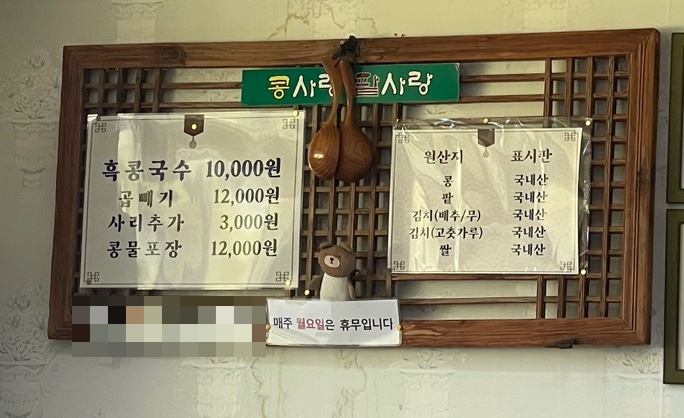 콩사랑팥사랑
흑콩국수 10,000원
곱빼기 12,000원
사리추가 3,000원
콩물포장 12,000원
원산지 표시판
콩 국내산
팥 국내산
김치(배추/무) 국내산
김치(고춧가루) 국내산
쌀 국내산
매주 월요일은 휴무입니다